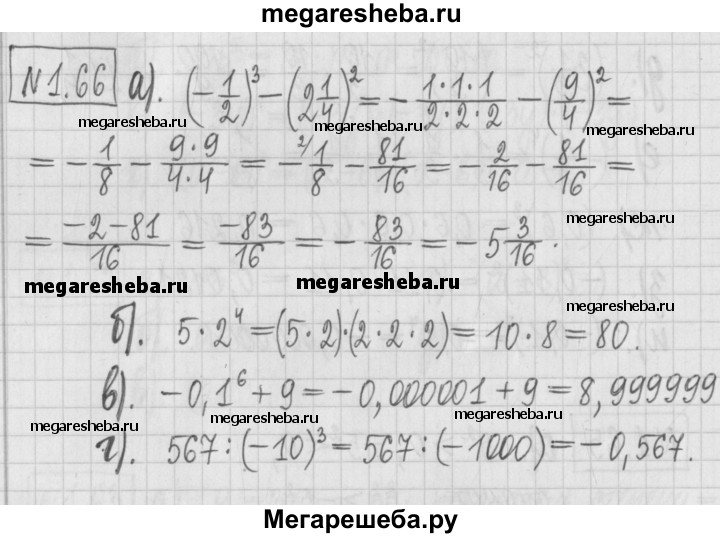 megaresheba.ru
№1.66 а). (-1/2)³-(2 1/4)²=-1·1·1/2·2·2-(9/4)²=
megaresheba.ru megaresheba.ru megaresheba.ru
=-1/8-9·9/4·4=-²⁾1/8-81/16=-2/16-81/16=
=-2-81/16=-83/16=-83/16=-5 3/16.
megaresheba.ru
megaresheba.ru megaresheba.ru
megaresheba.ru
б). 5·2⁴=(5·2)·(2·2·2)=10·8=80.
в). -0,1⁶+9=-0,000001+9=8,999999
megaresheba.ru megaresheba.ru megaresheba.ru
г). 567:(-10)³=567:(-1000)=-0,567.
megaresheba.ru
Мегарешеба.ру